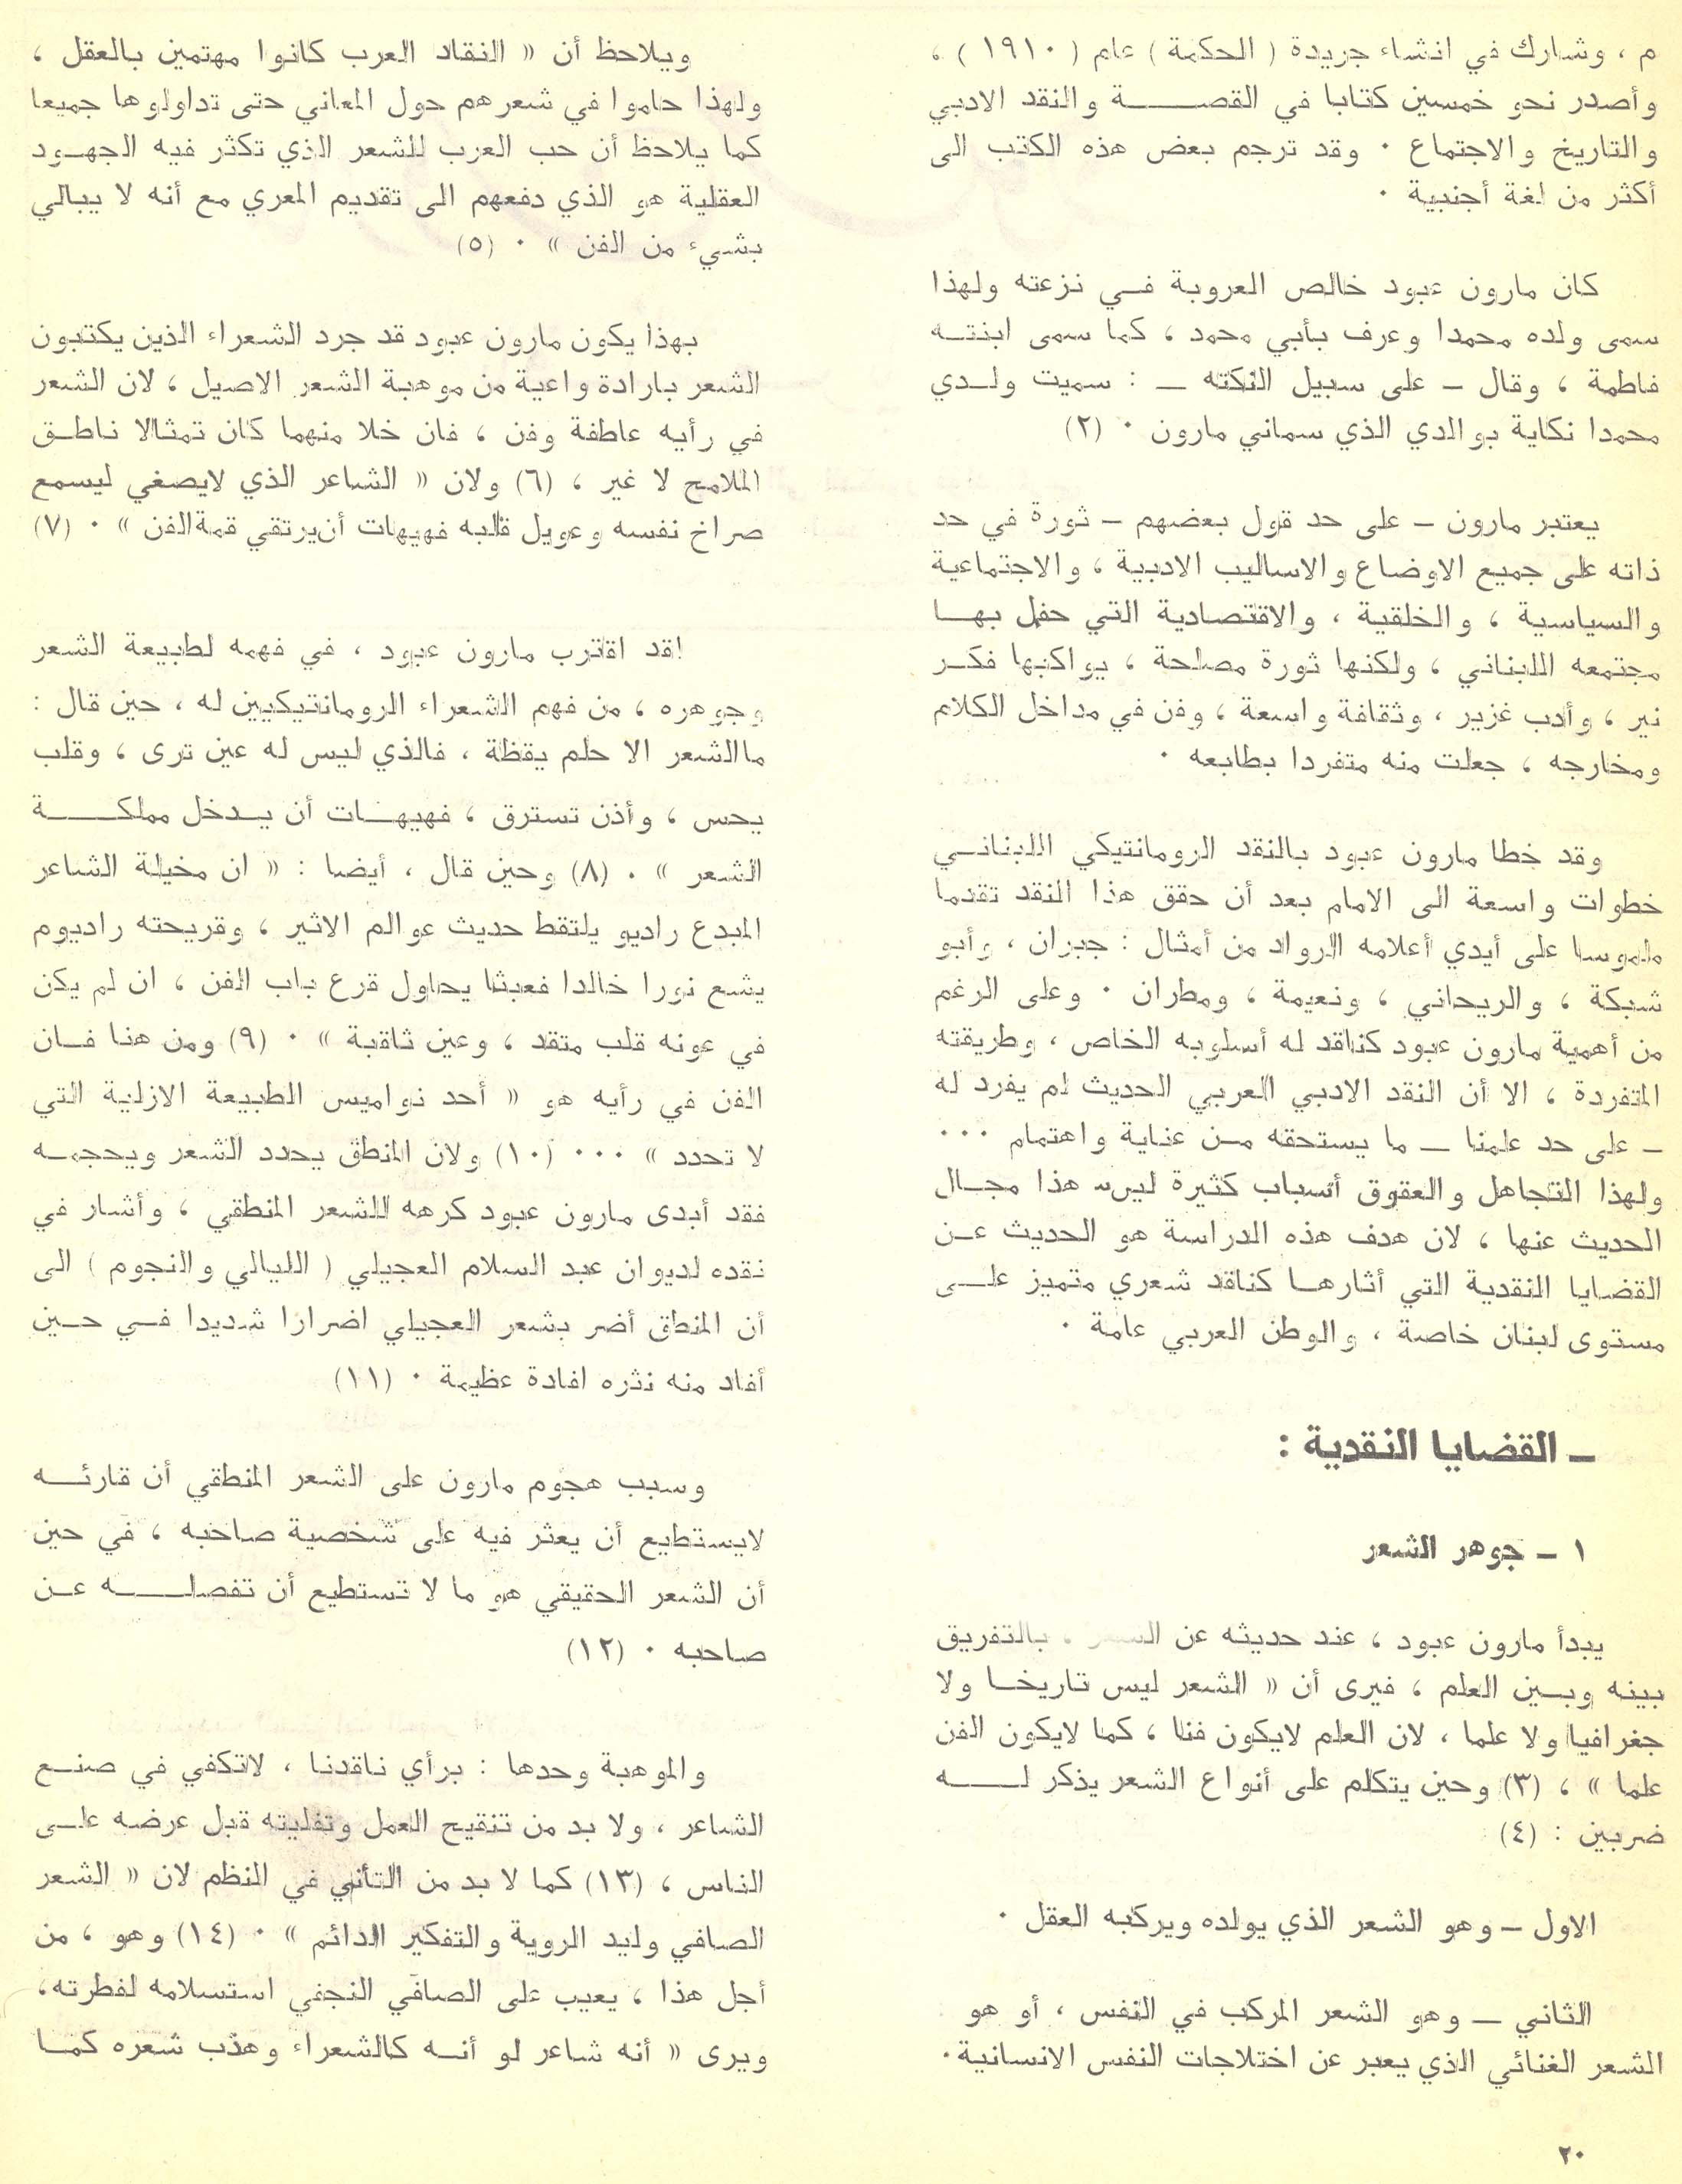 م ، وشارك في انشاء جريدة ( الحكمة ) عام ( ١٩١٠ ) ،
وأصدر نحو خمسين كتابا في القصة والنقد الادبي
والتاريخ والاجتماع . وقد ترجم بعض هذه الكتب الى
أكثر من لغة أجنبية .
كان مارون عبود خالص العروبة في نزعته ولهذا
سمى ولده محمدا وعرف بأبي محمد ، كما سمى ابنته
فاطمة ، وقال – على سبيل النكته – : سميت ولدي
محمدا نكاية بوالدي الذي سماني مارون . (٢)
يعتبر مارون – على حد قول بعضهم – ثورة في حد
ذاته على جميع الاوضاع والاساليب الادبية ، والاجتماعية
والسياسية ، والخلقية ، والاقتصادية التي حفل بها
مجتمعه اللبناني ، ولكنها ثورة مصلحة ، يواكبها فكر
نير ، وأدب غزير ، وثقافة واسعة ، وفن في مداخل الكلام
ومخارجه ، جعلت منه متفردا بطابعه .
وقد خطا مارون عبود بالنقد الرومانتيكي اللبناني
خطوات واسعة الى الامام بعد أن حقق هذا النقد تقدما
ملموسا على أيدي أعلامه الرواد من أمثال : جبران ، وأبو
شبكة ، والريحاني ، ونعيمة ، ومطران . وعلى الرغم
من أهمية مارون عبود كناقد له أسلوبه الخاص ، وطريقته
المتفردة ، الا أن النقد الادبي العربي الحديث لم يفرد له
– على حد علمنا – ما يستحقه من عناية واهتمام ...
ولهذا التجاهل والعقوق أسباب كثيرة ليس هذا مجال
الحديث عنها ، لان هدف هذه الدراسة هو الحديث عن
القضايا النقدية التي أثارها كناقد شعري متميز على
مستوى لبنان خاصة ، والوطن العربي عامة .
– القضايا النقدية :
١ – جوهر الشعر
يبدأ مارون عبود ، عند حديثه عن الشعر ، بالتفريق
بينه وبين العلم ، فيرى أن « الشعر ليس تاريخا ولا
جغرافيا ولا علما ، لان العلم لايكون فنا ، كما لايكون الفن
علما » ، (٣) وحين يتكلم على أنواع الشعر يذكر له
ضربين : (٤)
الاول – وهو الشعر الذي يولده ويركبه العقل .
الثاني – وهو الشعر المركب في النفس ، أو هو
الشعر الغنائي الذي يعبر عن اختلاجات النفس الانسانية .
ويلاحظ أن « النقاد العرب كانوا مهتمين بالعقل ،
ولهذا حاموا في شعرهم حول المعاني حتى تداولوها جميعا
كما يلاحظ أن حب العرب للشعر الذي تكثر فيه الجهود
العقلية هو الذي دفعهم الى تقديم المعري مع أنه لا يبالي
بشيء من الفن » . (٥)
بهذا يكون مارون عبود قد جرد الشعراء الذين يكتبون
الشعر بارادة واعية من موهبة الشعر الاصيل ، لان الشعر
في رأيه عاطفة وفن ، فان خلا منهما كان تمثالا ناطق
الملامح لا غير ، (٦) ولان « الشاعر الذي لايصغي ليسمع
صراخ نفسه وعويل قلبه فهيهات أن يرتقي قمة الفن » . (٧)
لقد اقترب مارون عبود ، في فهمه لطبيعة الشعر
وجوهره ، من فهم الشعراء الرومانتيكيين له ، حين قال :
ماالشعر الا حلم يقظة ، فالذي ليس له عين ترى ، وقلب
يحس ، وأذن تسترق ، فهيهات أن يدخل مملكة
الشعر » . (٨) وحين قال ، أيضا : « ان مخيلة الشاعر
المبدع راديو يلتقط حديث عوالم الاثير ، وقريحته راديوم
يشع نورا خالدا فعبثا يحاول قرع باب الفن ، ان لم يكن
في عونه قلب متقد ، وعين ثاقبة » . (٩) ومن هنا فان
الفن في رأيه هو « أحد نواميس الطبيعة الازلية التي
لا تحدد » ... (١٠) ولان المنطق يحدد الشعر ويحجمه
فقد أبدى مارون عبود كرهه للشعر المنطقي ، وأشار في
نقده لديوان عبد السلام العجيلي ( الليالي والنجوم ) الى
أن المنطق أضر بشعر العجيلي اضرارا شديدا في حين
أفاد منه نثره افادة عظيمة . (١١)
وسبب هجوم مارون على الشعر المنطقي أن قارئه
لايستطيع أن يعثر فيه على شخصية صاحبه ، في حين
أن الشعر الحقيقي هو ما لا تستطيع أن تفصله عن
صاحبه . (١٢)
والموهبة وحدها : برأي ناقدنا ، لاتكفي في صنع
الشاعر ، ولا بد من تنقيح العمل وتفليته قبل عرضه على
الناس ، (١٣) كما لا بد من التأني في النظم لان « الشعر
الصافي وليد الروية والتفكير الدائم » . (١٤) وهو ، من
أجل هذا ، يعيب على الصافي النجفي استسلامه لفطرته ،
ويرى « أنه شاعر لو أنه كالشعراء وهذب شعره كما
٢٠